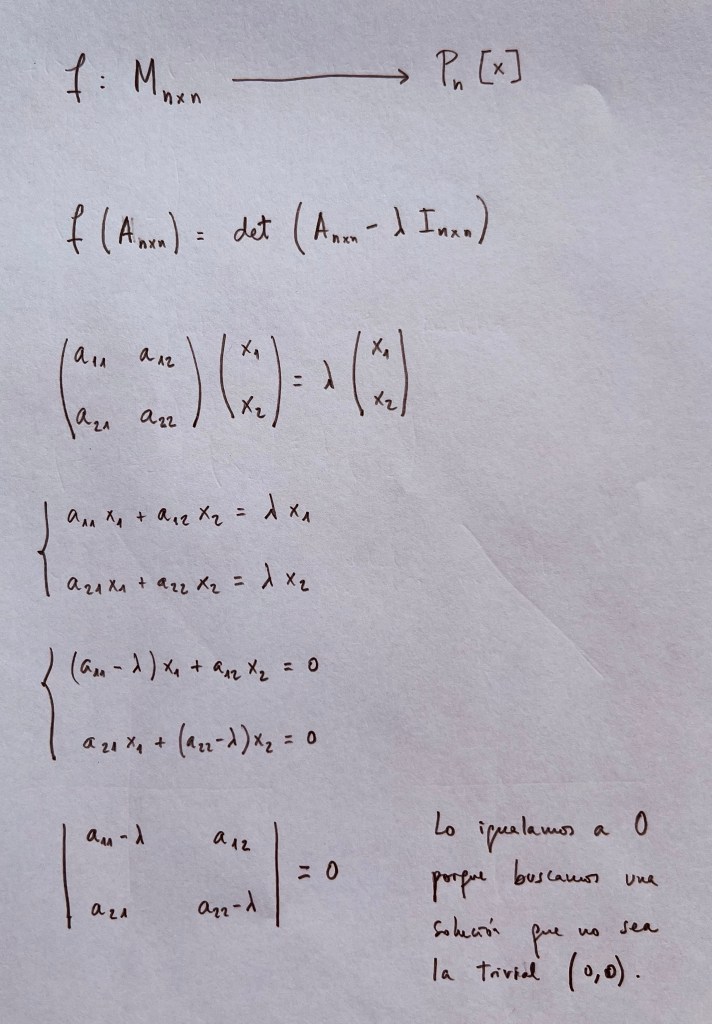 f : M_{n×n} ⟶ P_n [x]
f (A_{n×n}) = det (A_{n×n} - λ I_{n×n})
(a_{11} a_{12}; a_{21} a_{22}) (x_1; x_2) = λ (x_1; x_2)
{ a_{11} x_1 + a_{12} x_2 = λ x_1
a_{21} x_1 + a_{22} x_2 = λ x_2
{ (a_{11} - λ) x_1 + a_{12} x_2 = 0
a_{21} x_1 + (a_{22} - λ) x_2 = 0
| a_{11} - λ a_{12}; a_{21} a_{22} - λ | = 0
Lo igualamos a 0
porque buscamos una
solución que no sea
la trivial (0,0).